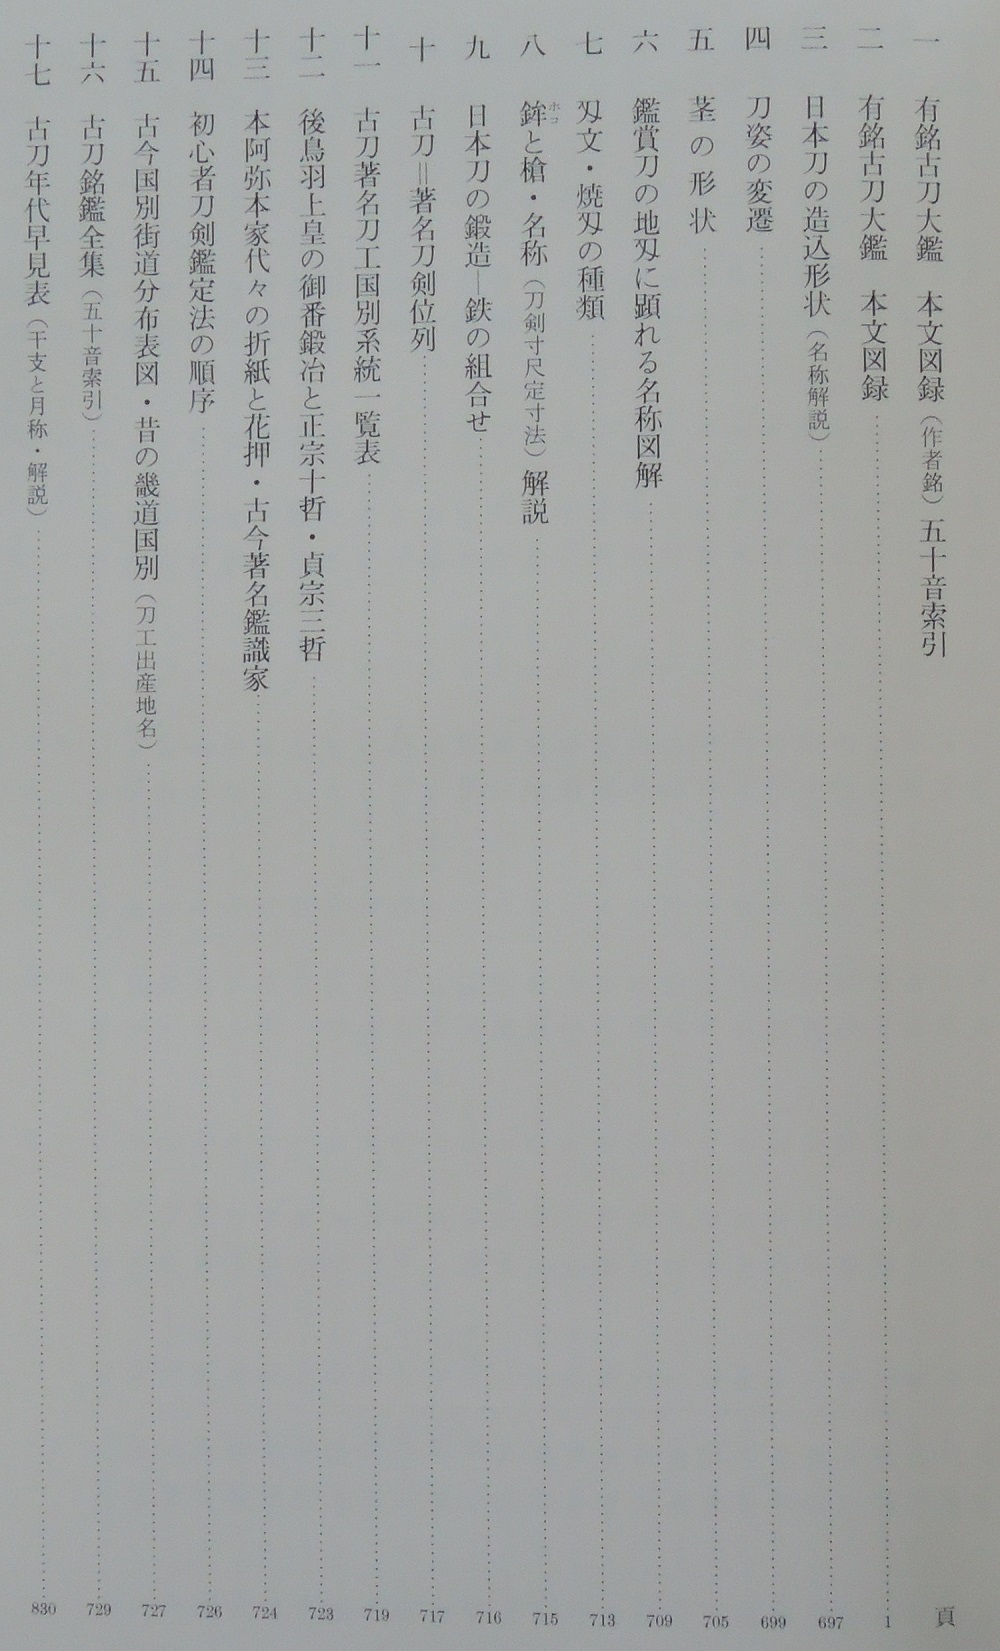 頁
一 有銘古刀大鑑 本文図録（作者銘）五十音索引
二 有銘古刀大鑑 本文図録 1
三 日本刀の造込形状（名称解説） 697
四 刀姿の変遷 699
五 茎の形状 705
六 鑑賞刀の地刄に顕れる名称図解 709
七 刄文・焼刄の種類 713
八 鉾ホコと槍・名称（刀剣寸尺定寸法）解説 715
九 日本刀の鍛造―鉄の組合せ 716
十 古刀＝著名刀剣位列 717
十一 古刀著名刀工国別系統一覧表 719
十二 後鳥羽上皇の御番鍛冶と正宗十哲・貞宗三哲 723
十三 本阿弥本家代々の折紙と花押・古今著名鑑識家 724
十四 初心者刀剣鑑定法の順序 726
十五 古今国別街道分布表図・昔の畿道国別（刀工出産地名） 727
十六 古刀銘鑑全集（五十音索引） 729
十七 古刀年代早見表（干支と月称・解説） 830